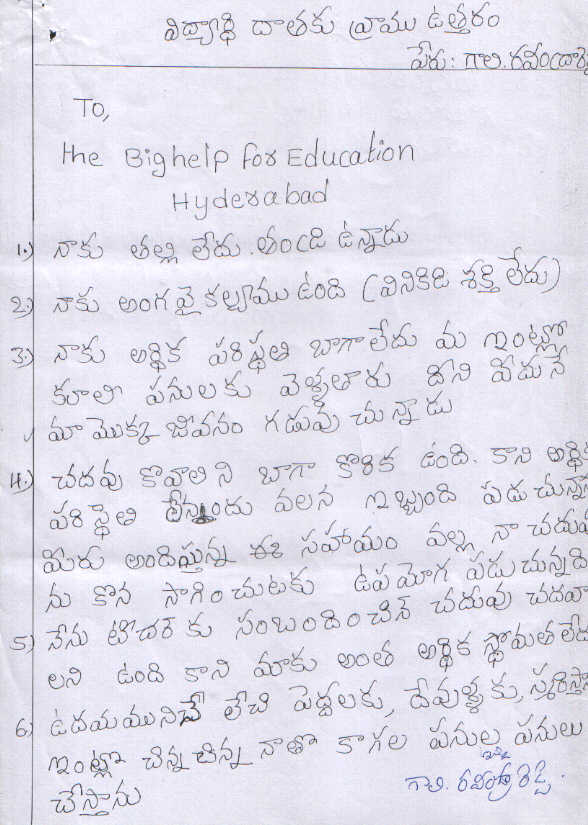 విద్యార్థి దాతకు వ్రాము ఉత్తరం
పేరు: గాలి. రవీంద్రారె
To,
the Bighelp for Education
Hyderabad
1.) నాకు తల్లి లేదు. తండ్రి ఉన్నాడు
2.) నాకు అంగవైకల్యాము ఉంది (వినికిడి శక్తి లేదు)
3.) నాకు అర్థిక పరిస్థతి బాగా లేదు మ ఇంట్లో
కూలి పనులకు వెళ్ళతారు దీని మీదునే
మా మొక్క జీవనం గడుపు చున్నాడు
4.) చదవు కోవాలి ని బాగా కొరిక ఉంది. కాని అర్థిక
పరిస్థితి వలన ఇబ్బంది పడు చున్నా
మీరు అందిస్తున్న ఈ సహాయం వల్ల నా చదువు
ను కొన సాగించుటకు ఉపమోగ పడుచున్నది
5) నేను టీచర్ కు సంబందించిన్ చదువు చదవా
లని ఉంది కాని మాకు అంత అర్థిక స్థోమత లేదు
6) ఉదయమునిచే లేచి పెద్దలకు, దేవుళ్ళకు, స్మరిస్తా
ఇంట్లో చిన్న చిన్న నాతొ కాగల పనుల పనులు
చేస్తాను
గాలి. రవీంద్రారెడ్డి.